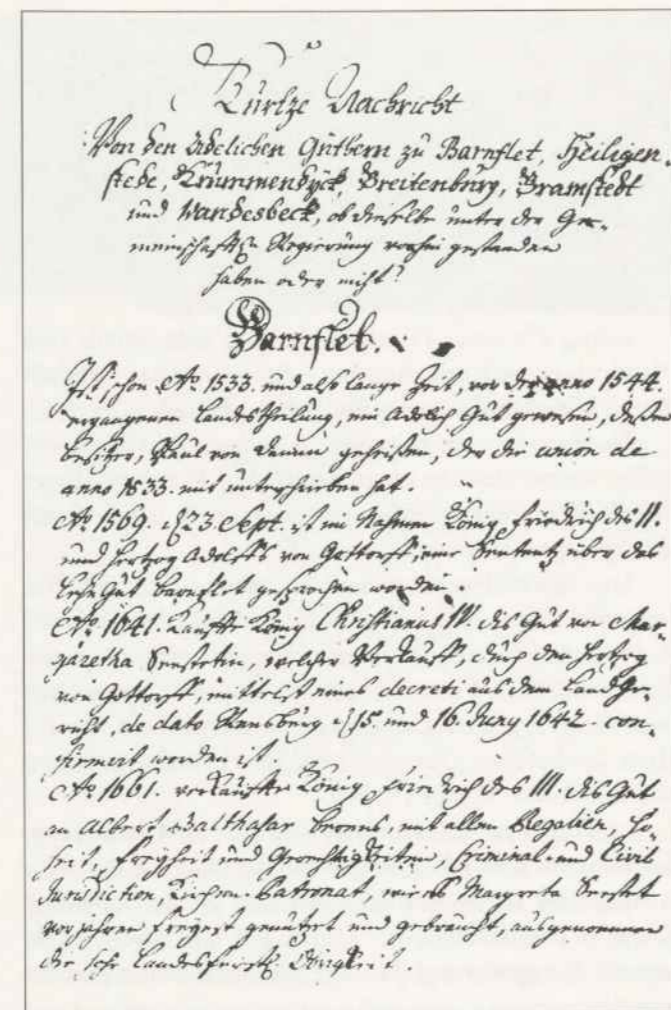 Kurtze Nachricht
Von den Adelichen Güthern zu Barnflet, Heiligen-
stede, Krummendyck, Breitenburg, Bramstedt
und Wandesbeck, ob dieselbe unter der Ge-
meinschafftl. Regierung vorhin gestanden
haben oder nicht?
Barnflet.
Ist schon Ao. 1533. und also lange Zeit, vor der anno 1544.
ergangenen Landestheilung, ein Adelich Gut gewesen, deßen
besitzer, Paul von geheißen, der die union de
anno 1533. mit unterschrieben hat.
Ao. 1569. d 23 Sept. ist im Nahmen König Friedrich des II.
und Hertzog Adolff's von Gottorff, eine Sententz über das
Lehn Gut barnflet gesprochen worden.
Ao. 1641. Kauffte König Christianus IV. dis Gut von Mar-
garetha Seestetin, welcher Verkauff, durch den Hertzog
von Gottorff, mittelst eines decreti aus dem Landge-
richt, de dato Rensburg d 15. und 16. Juny 1642. con-
firmirt worden ist.
Ao. 1661. verkauffte König Friedrich des III. dis Gut
an Albert Balthasar berens, mit allen Regalien, Ho-
heit, Freyheit und Gerechtigkeiten, Criminal- und Civil
Jurisdiction, Kirchen-Patronat, wie es Margreta Seestet
vor jahren freyest genützet und gebraucht, ausgenommen
die hohe Landesfürstl. Obrigkeit.